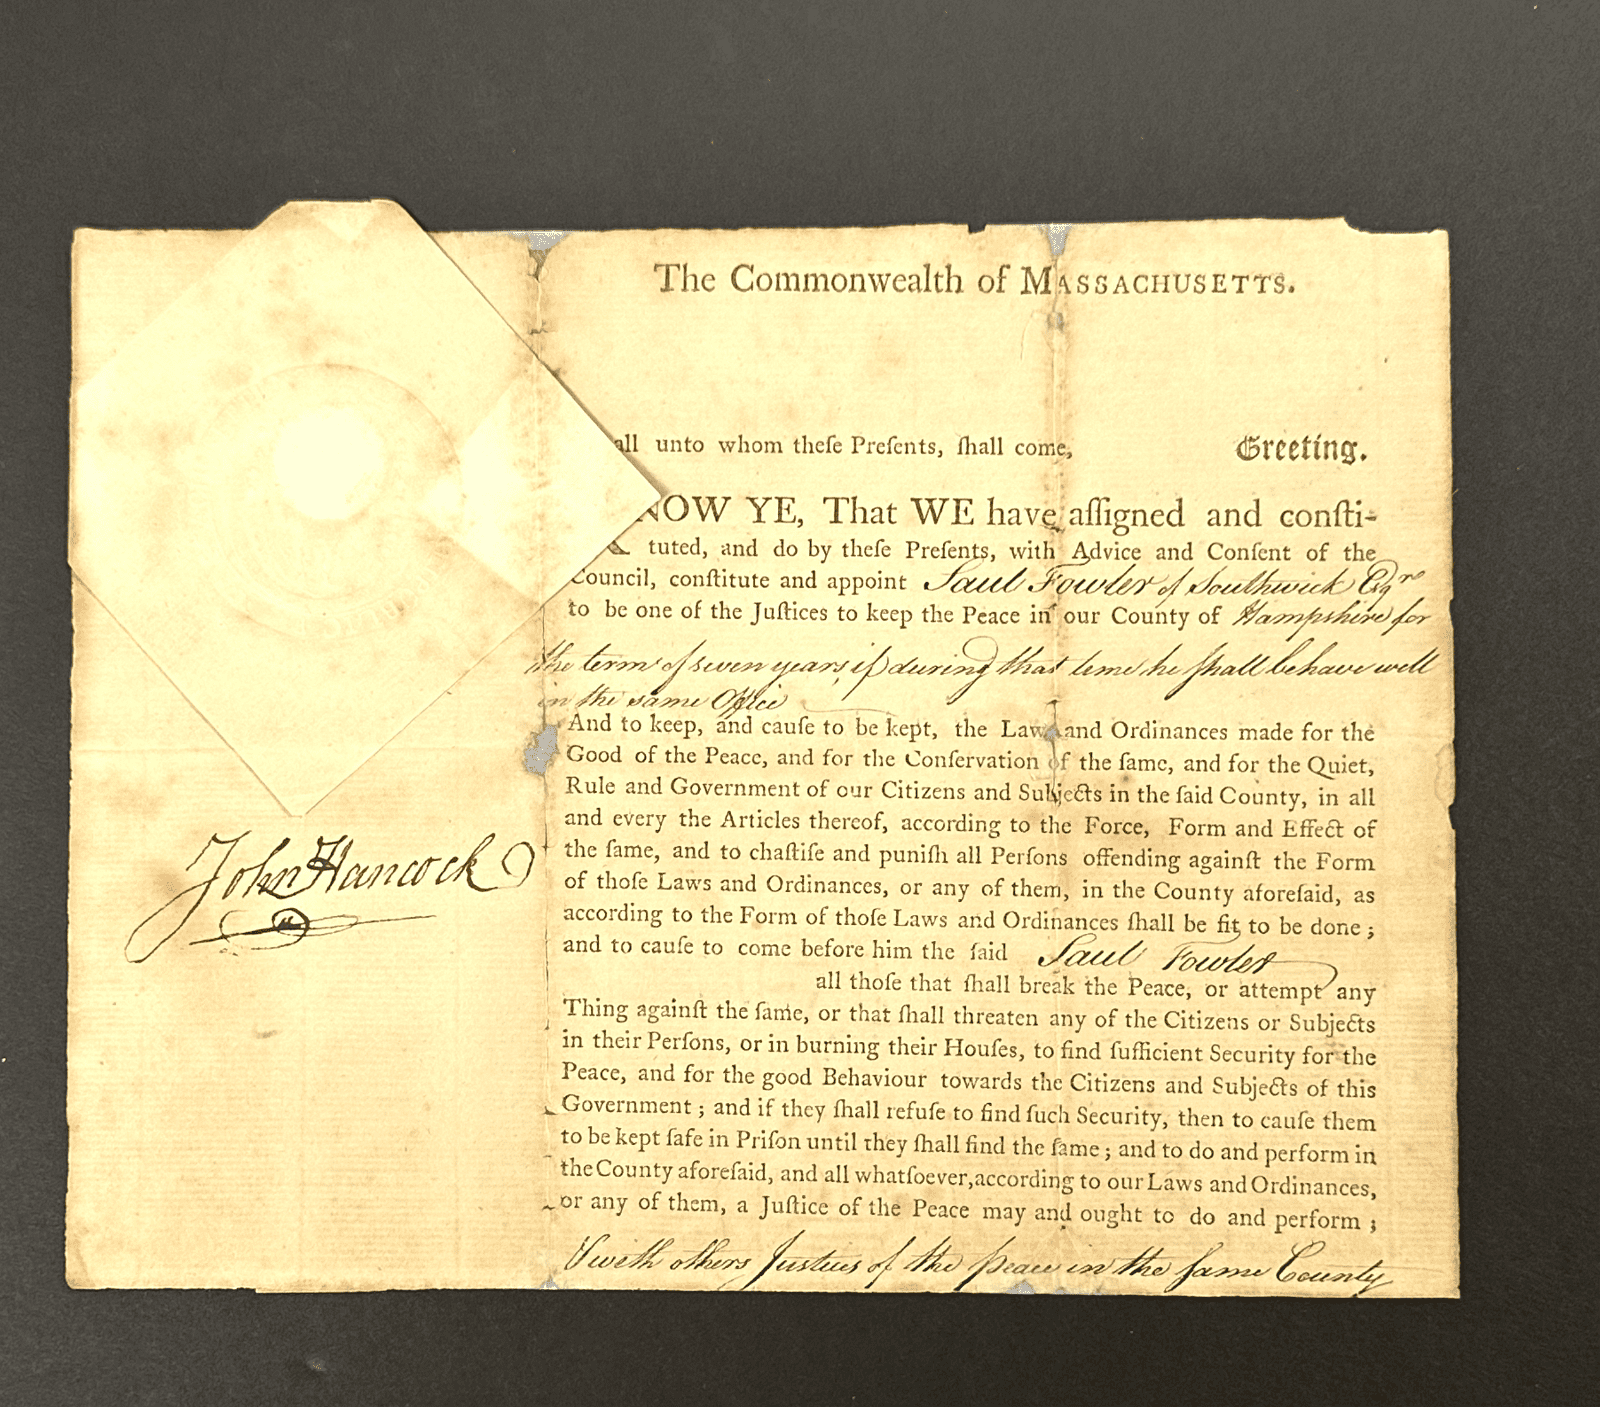 The Commonwealth of MASSACHUSETTS.
all unto whom theſe Preſents, ſhall come, Greeting.
NOW YE, That WE have aſſigned and conſti-
tuted, and do by theſe Preſents, with Advice and Conſent of the
Council, conſtitute and appoint Saul Fowler of Southwick Esqr
to be one of the Juſtices to keep the Peace in our County of Hampshire for
the term of seven years, if during that time he ſhall behave well
in the same Office
And to keep, and cauſe to be kept, the Laws and Ordinances made for the
Good of the Peace, and for the Conſervation of the ſame, and for the Quiet,
Rule and Government of our Citizens and Subjects in the ſaid County, in all
and every the Articles thereof, according to the Force, Form and Effect of
the ſame, and to chaſtiſe and puniſh all Perſons offending againſt the Form
of thoſe Laws and Ordinances, or any of them, in the County aforeſaid, as
according to the Form of thoſe Laws and Ordinances ſhall be fit to be done;
and to cauſe to come before him the ſaid Saul Fowler
all thoſe that ſhall break the Peace, or attempt any
Thing againſt the ſame, or that ſhall threaten any of the Citizens or Subjects
in their Perſons, or in burning their Houſes, to find ſufficient Security for the
Peace, and for the good Behaviour towards the Citizens and Subjects of this
Government; and if they ſhall refuſe to find ſuch Security, then to cauſe them
to be kept ſafe in Priſon until they ſhall find the ſame; and to do and perform in
the County aforeſaid, and all whatſoever, according to our Laws and Ordinances,
or any of them, a Juſtice of the Peace may and ought to do and perform;
& with others Justices of the peace in the ſame County
John Hancock